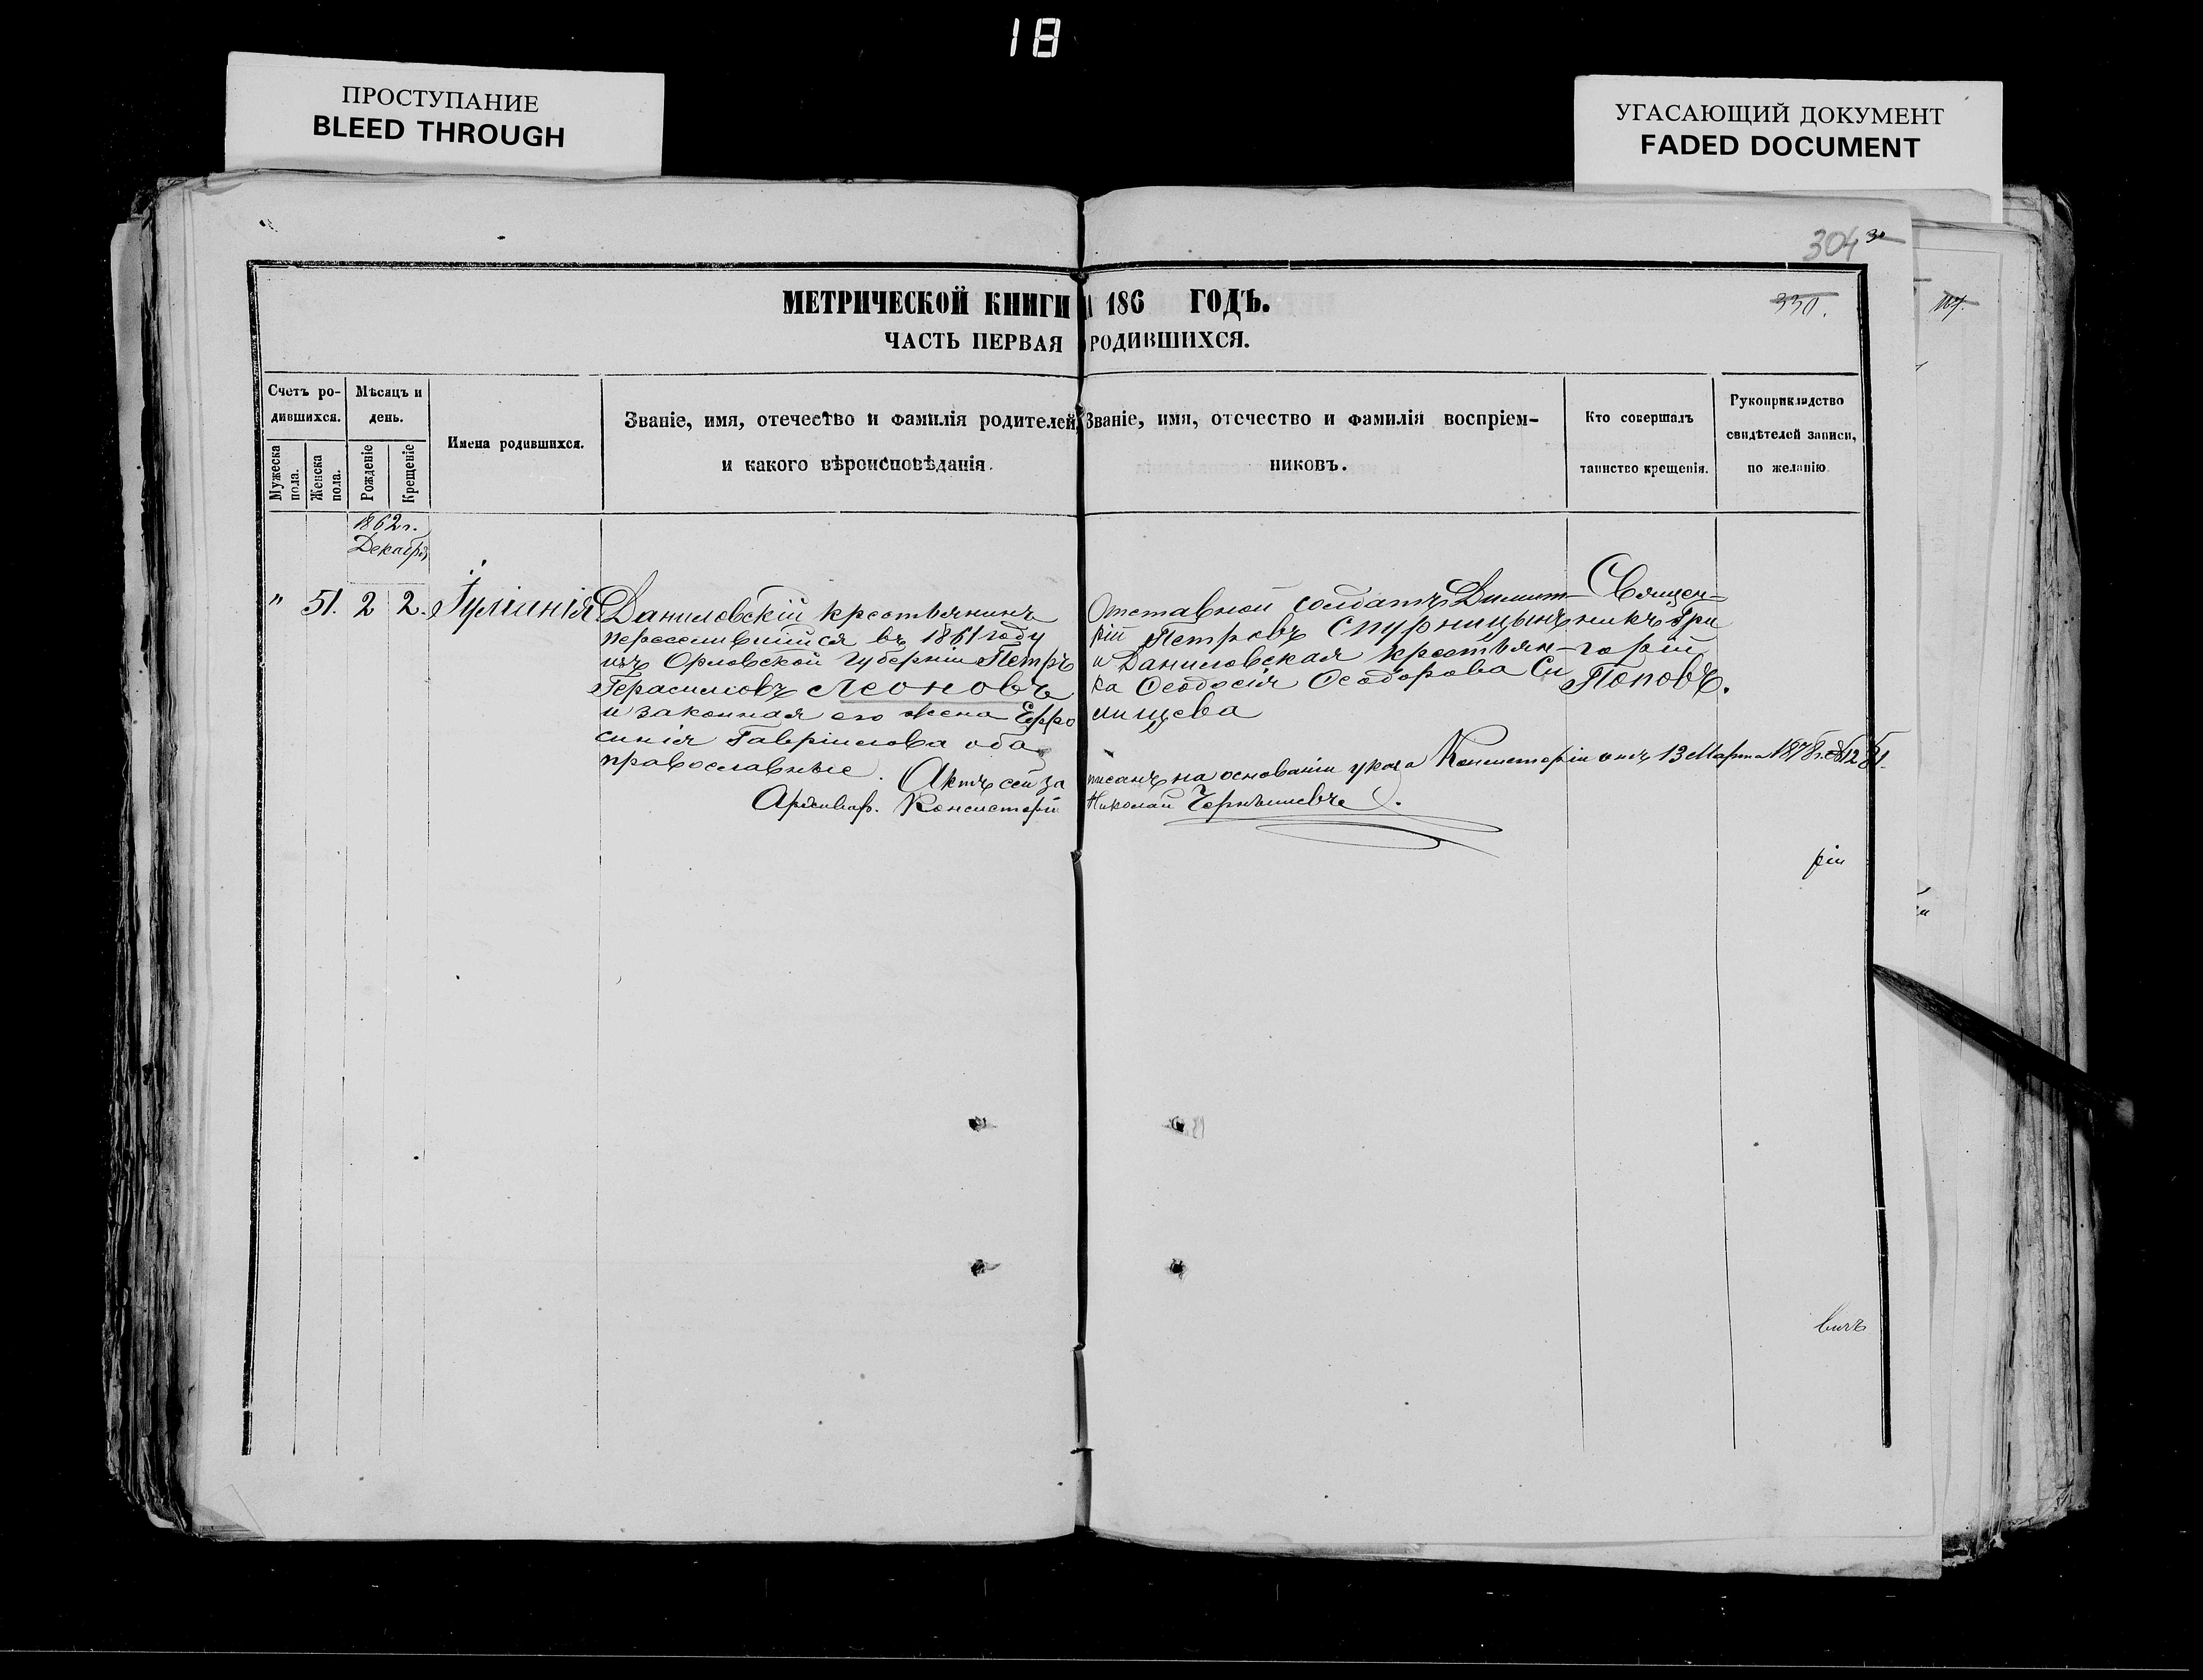 18
ПРОСТУПАНИЕ
BLEED THROUGH
УГАСАЮЩИЙ ДОКУМЕНТ
FADED DOCUMENT
304
330.
МЕТРИЧЕСКОЙ КНИГИ 186 ГОДЪ.
ЧАСТЬ ПЕРВАЯ РОДИВШИХСЯ.
Счетъ ро-
дившихся.
Мужеска
пола.
Женска
пола.
Мѣсяцъ и
день.
Рожденіе
Крещеніе
Имена родившихся.
Званіе, имя, отечество и фамилія родителей,
и какого вѣроисповѣданія.
Званіе, имя, отечество и фамилія воспріем-
никовъ.
Кто совершалъ
таинство крещенія.
Рукоприкладство
свидѣтелей записи,
по желанію
1862 г.
Декабрь
" 51. 2 2. Іуліанія
Даниловскій крестьянинъ
переселившійся въ 1861 году
изъ Орловской губерніи Петръ
Герасимовъ Леоновъ
и законная его жена Ефро
синія Гавріилова оба
православные.
Отставной солдатъ Димит-
рій Петровъ Спурницынъ
и Даниловская крестьян-
ка Ѳеодосія Ѳеодорова Си
мищева
Священ-
никъ Гри
горій
Поповъ.
Актъ сей за писанъ на основаніи указа Консисторіи отъ 13 Марта 1878 г. № 1281.
Архивар. Консисторіи Николай Чернышевъ.
ріи
вичъ